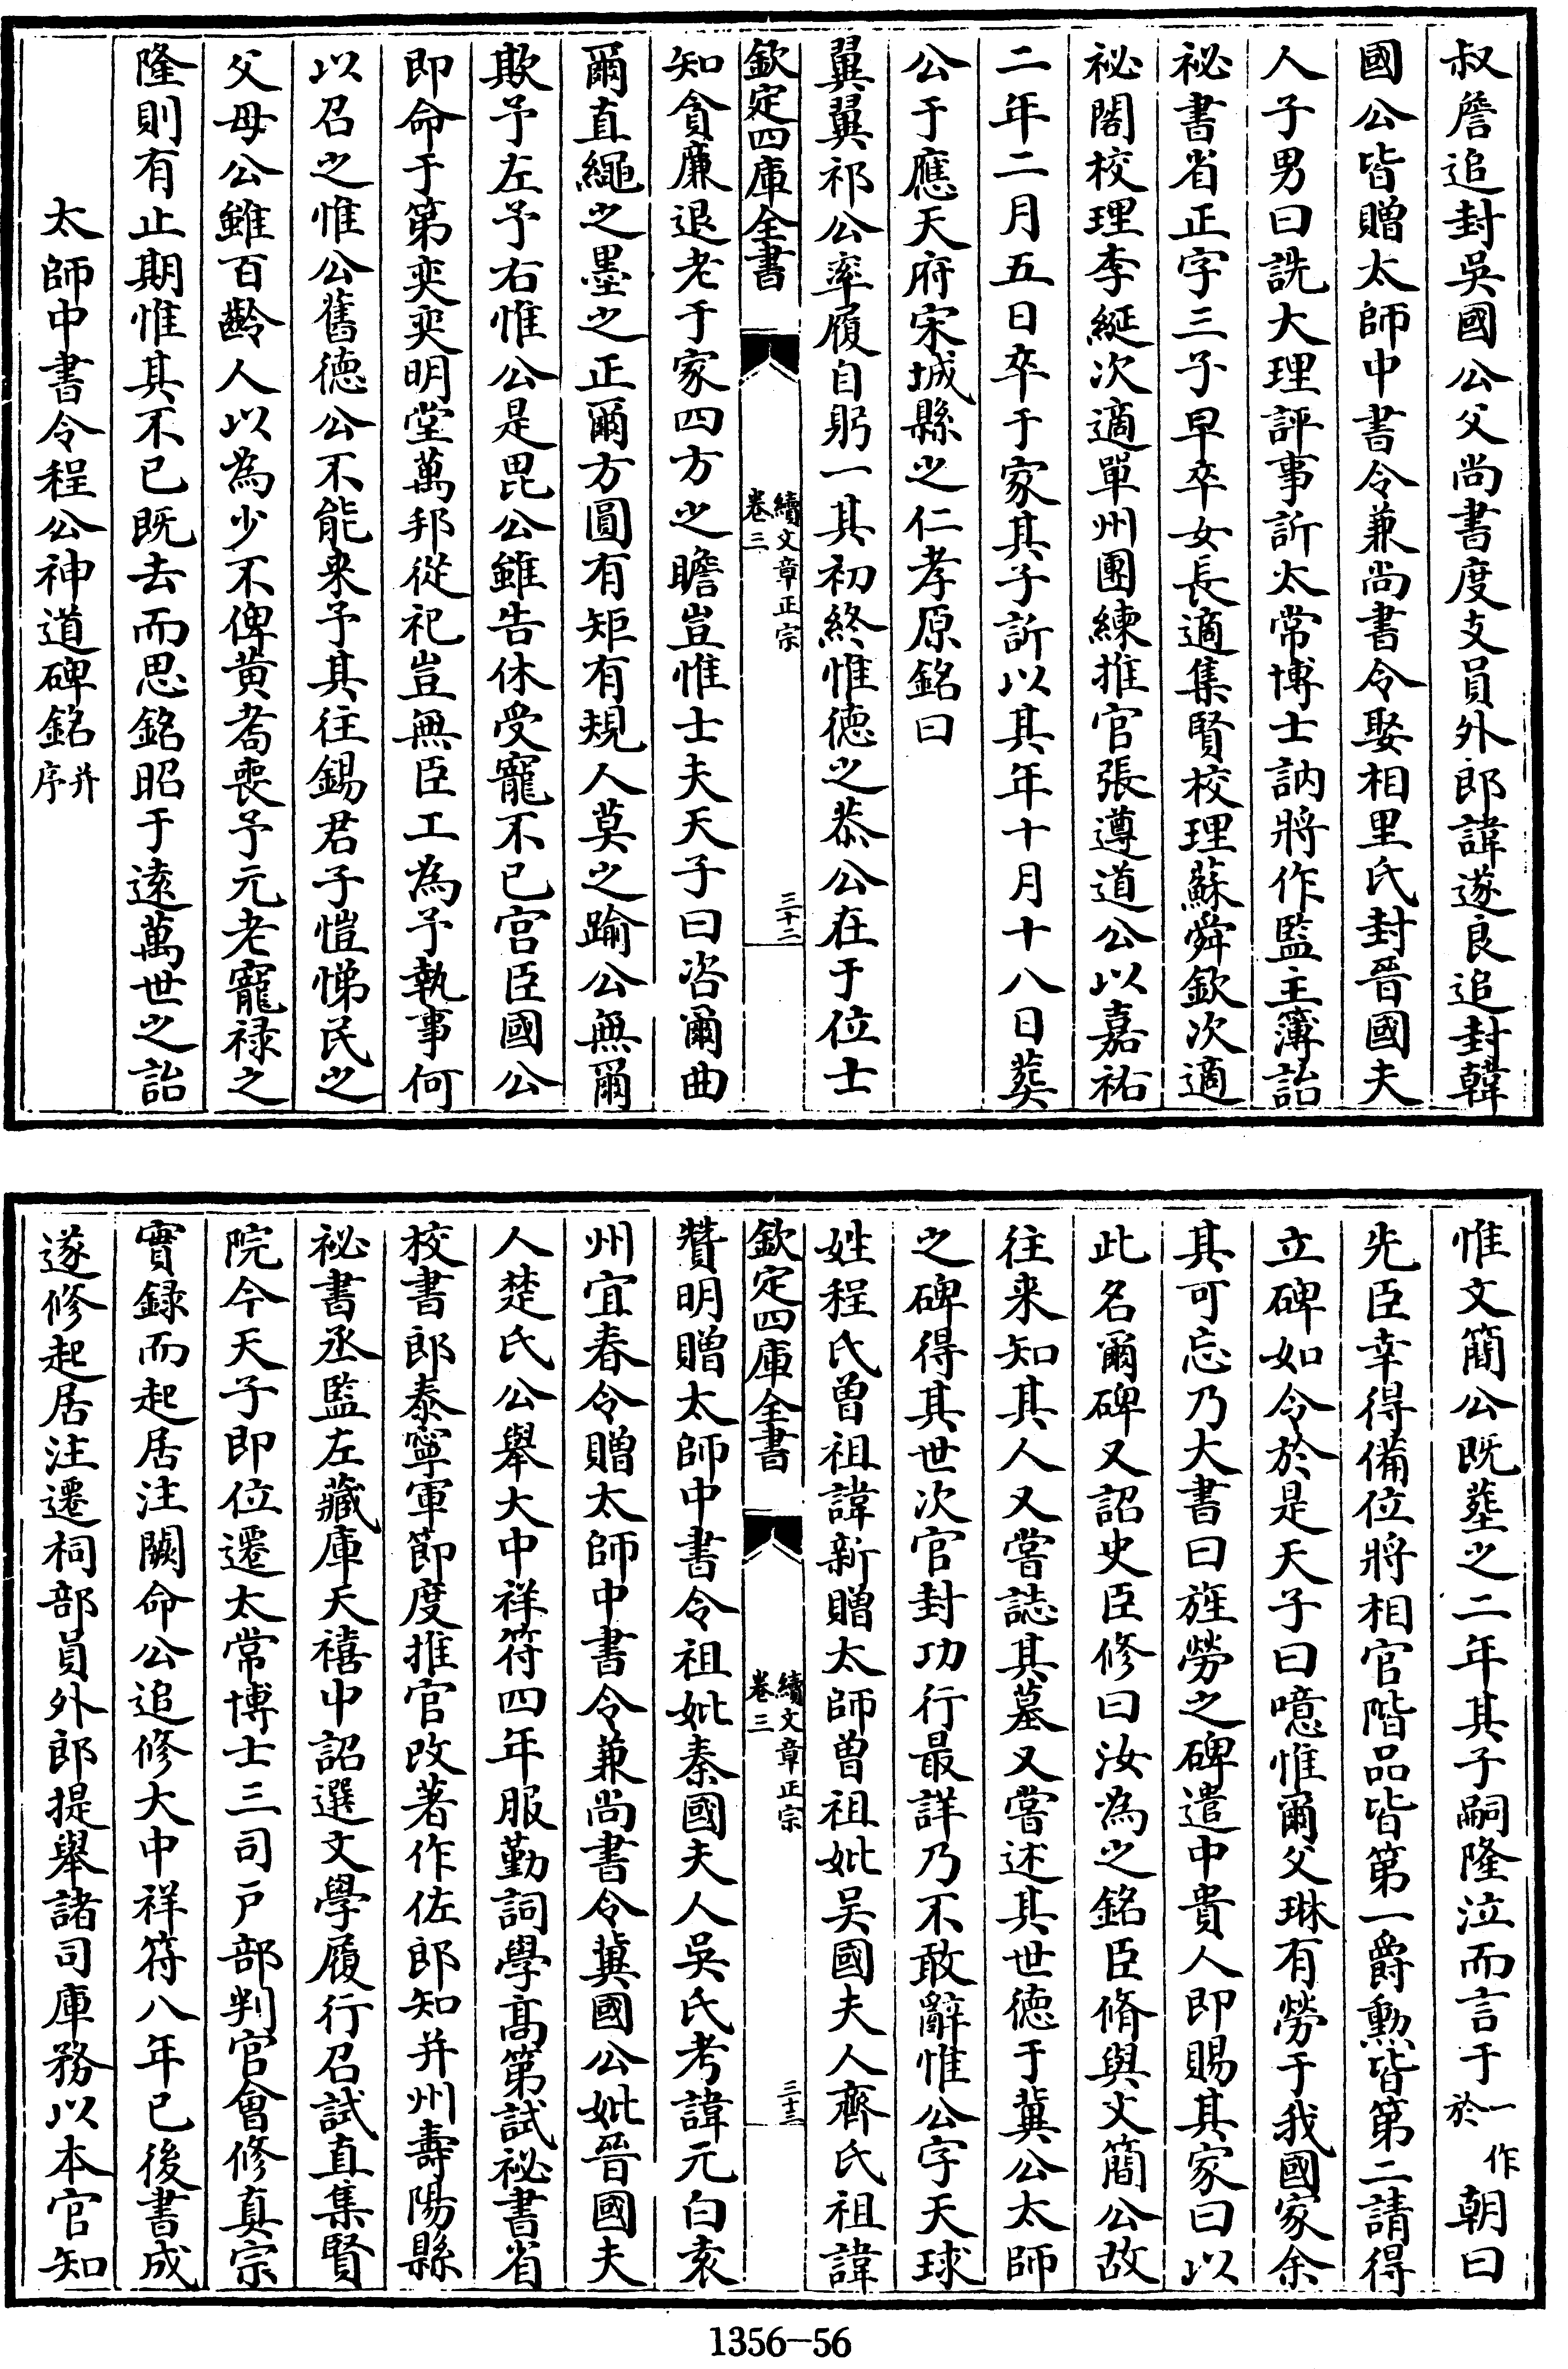 叔詹追封吳國公父尚書度支員外郎諱遂良追封韓
國公皆贈太師中書令兼尚書令娶相里氏封晉國夫
人子男曰詵大理評事訢太常博士訥將作監主簿詒
祕書省正字三子早卒女長適集賢校理蘇舜欽次適
祕閣校理李綖次適單州團練推官張遵道公以嘉祐
二年二月五日卒于家其子訢以其年十月十八日葬
公于應天府宋城縣之仁孝原銘曰
翼翼祁公率履自躬一其初終惟德之恭公在于位士
欽定四庫全書
續文章正宗
卷三
三十二
知貪廉退老于家四方之瞻豈惟士夫天子曰咨爾曲
爾直繩之墨之正爾方圓有矩有規人莫之踰公無爾
欺予左予右惟公是毘公雖告休受寵不已宫臣國公
即命于第奕奕明堂萬邦從祀豈無臣工為予執事何
以召之惟公舊德公不能来予其往錫君子愷悌民之
父母公雖百齡人以為少不俾黄耈喪予元老寵禄之
隆則有止期惟其不已既去而思銘昭于逺萬世之詒
太師中書令程公神道碑銘并序
惟文簡公既葬之二年其子嗣隆泣而言于一作於朝曰
先臣幸得備位將相官階品皆第一爵勲皆第二請得
立碑如令於是天子曰噫惟爾父琳有勞于我國家余
其可忘乃大書曰旌勞之碑遣中貴人即賜其家曰以
此名爾碑又詔史臣修曰汝為之銘臣脩與文簡公故
往来知其人又嘗誌其墓又嘗述其世德于冀公太師
之碑得其世次官封功行最詳乃不敢辭惟公字天球
姓程氏曾祖諱新贈太師曾祖妣吴國夫人齊氏祖諱
欽定四庫全書
續文章正宗
卷三
三十三
贊明贈太師中書令祖妣秦國夫人吳氏考諱元白袁
州宜春令贈太師中書令兼尚書令冀國公妣晉國夫
人楚氏公舉大中祥符四年服勤詞學髙第試祕書省
校書郎泰寧軍節度推官改著作佐郎知并州壽陽縣
祕書丞監左藏庫天禧中詔選文學履行召試直集賢
院今天子即位遷太常博士三司户部判官會修真宗
實録而起居注闕命公追修大中祥符八年已後書成
遂修起居注遷祠部員外郎提舉諸司庫務以本官知
1356-56